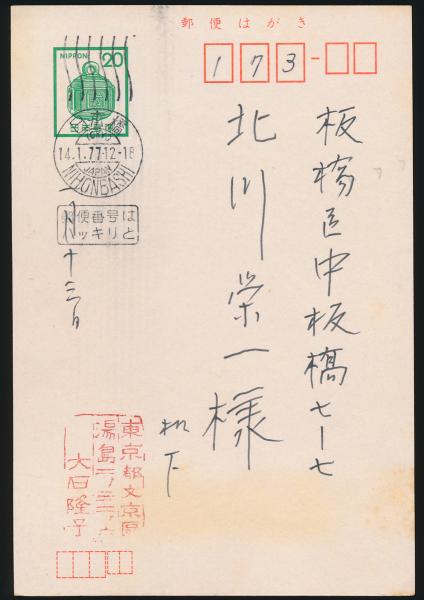 郵便はがき
173-
NIPPON 20
日本郵便
14.1.77.12-18
JAPAN
NIHONBASHI
郵便番号は
ハッキリと
板橋区中板橋七ー七
北川栄一様
机下
一月十三日
東京都文京区
湯島
大石隆子